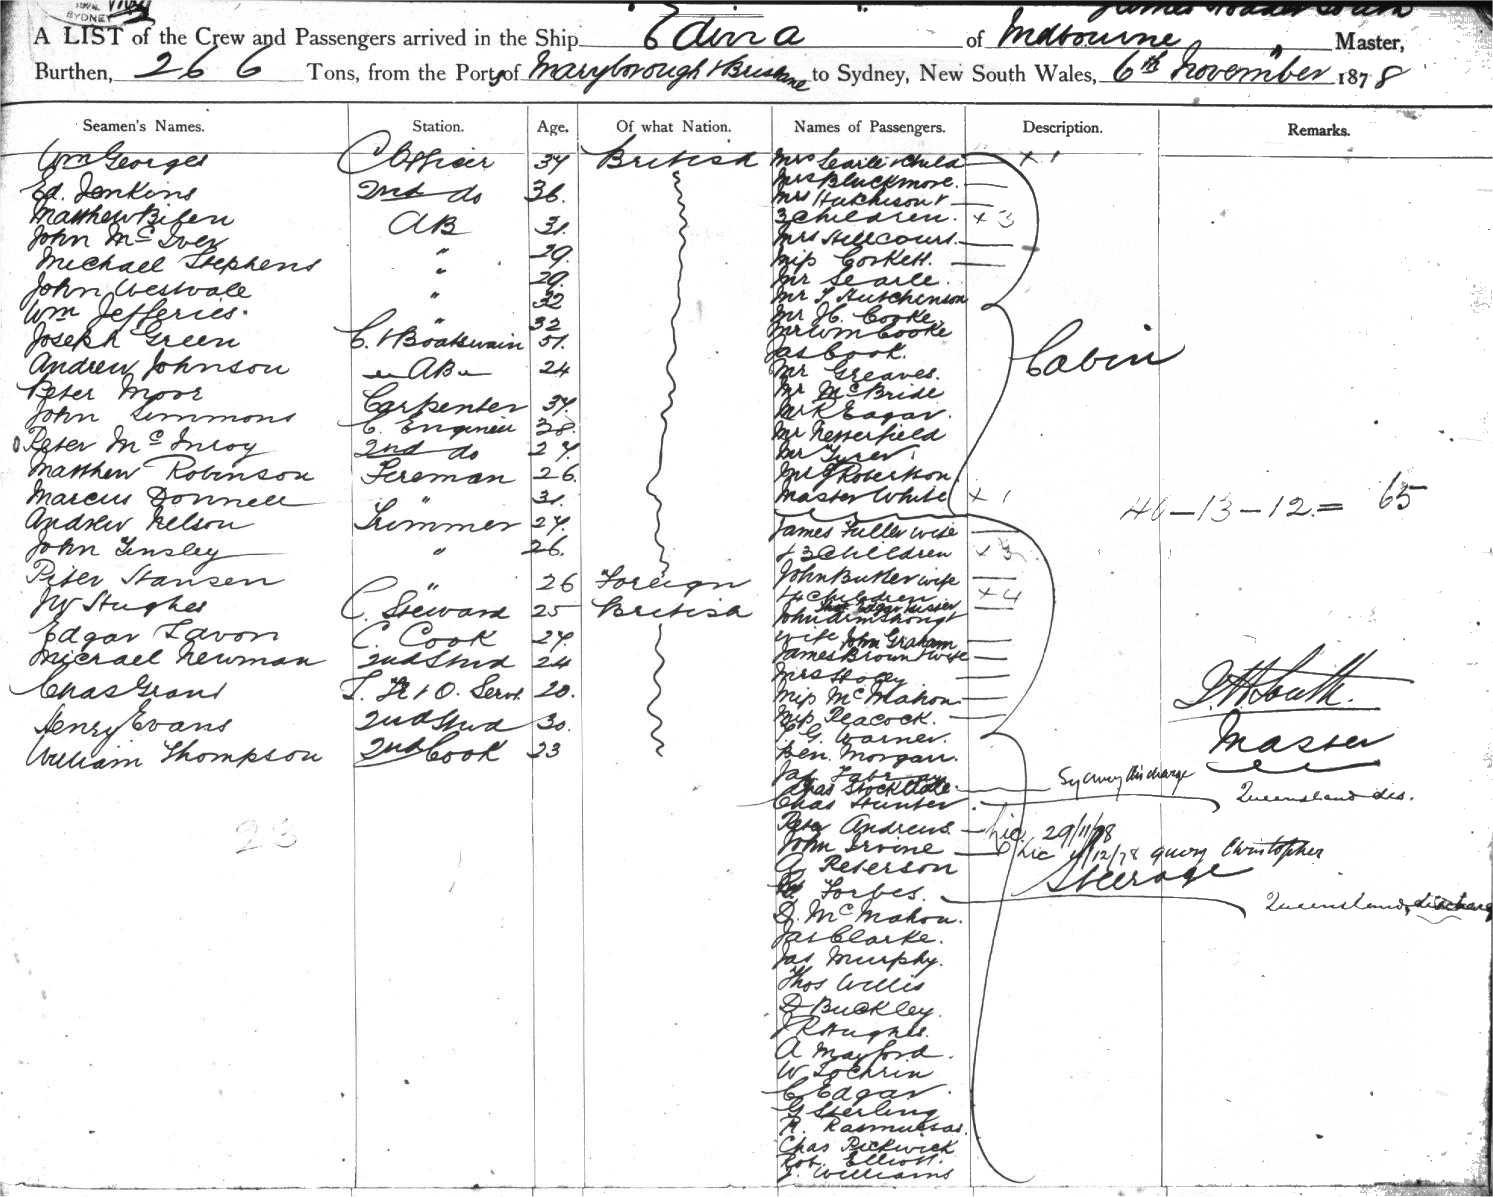 SYDNEY
A LIST of the Crew and Passengers arrived in the Ship Edina of Melbourne Master,
Burthen, 266 Tons, from the Ports of Maryborough & Brisbane to Sydney, New South Wales, 6th November 1878
Seamen's Names. Station. Age. Of what Nation. Names of Passengers. Description. Remarks.
Wm Georges C Officer 34 British
Ed. Jenkins 2nd do 36.
Matthew AB 31.
John McIver " 29.
Michael Stephens " 29.
John Westvale " 32
Wm Jefferies. " 32
Joseph Green C. & Boatswain 51.
Andrew Johnson AB 24
Peter Moor Carpenter 34.
John Simmons C. Engineer 38.
Peter McInroy 2nd do 27.
Matthew Robinson Fireman 26.
Marcus Donnell " 31.
Andrew Nelson Trimmer 27.
John Tinsley " 26.
Peter Hansen " 26 Foreign
JW Hughes C. Steward 25 British
Edgar Favon C. Cook 27.
Micrael Newman 2nd Stwd 24
Chas Grant Servt. 20.
Henry Evans 2nd Stwd 30.
William Thompson 2nd Cook 23
23
Mrs Searle & Child x 1
Mrs Blackmore.
Mrs Hutchison &
3 Children. x 3
Mrs Hellcourt.
Miss Corkett.
Mr Searle.
Mr T Hutchinson
Mr H. Cooke.
Mr Wm Cooke
Jas Cook.
Mr Greaves.
Mr McBride
Mr K Eagar.
Mr Nesserfield
Mr Tyrer.
Mr J Robertson
Master White x 1
Cabin
James Fuller wife
& 3 Children x 3
John Butler wife
& 4 Children x 4
John Armstrong &
wife John Graham
James Brown & wife
Mrs Stacey
Miss McMahon
Miss Peacock.
G. Warner.
Ben. Morgan.
Jas
Chas Stockdale. Sydney discharge
Chas Hunter Queensland dis.
Peter Andrews Lic. 29/11/78
John Irvine Lic 4/12/78 query Christopher
G Peterson
Forbes. Queensland, discharge
D. McMahon.
Jas Clarke.
Jas Murphy.
Thos Willis
D Buckley.
J R Hughes.
A Mayford.
W Lochrin
C Edgar
G Sterling
R. Rasmussas.
Chas Pickwick
Rob. Elliott.
J. Williams
Steerage
46 – 13 – 12 = 65
J H South.
Master